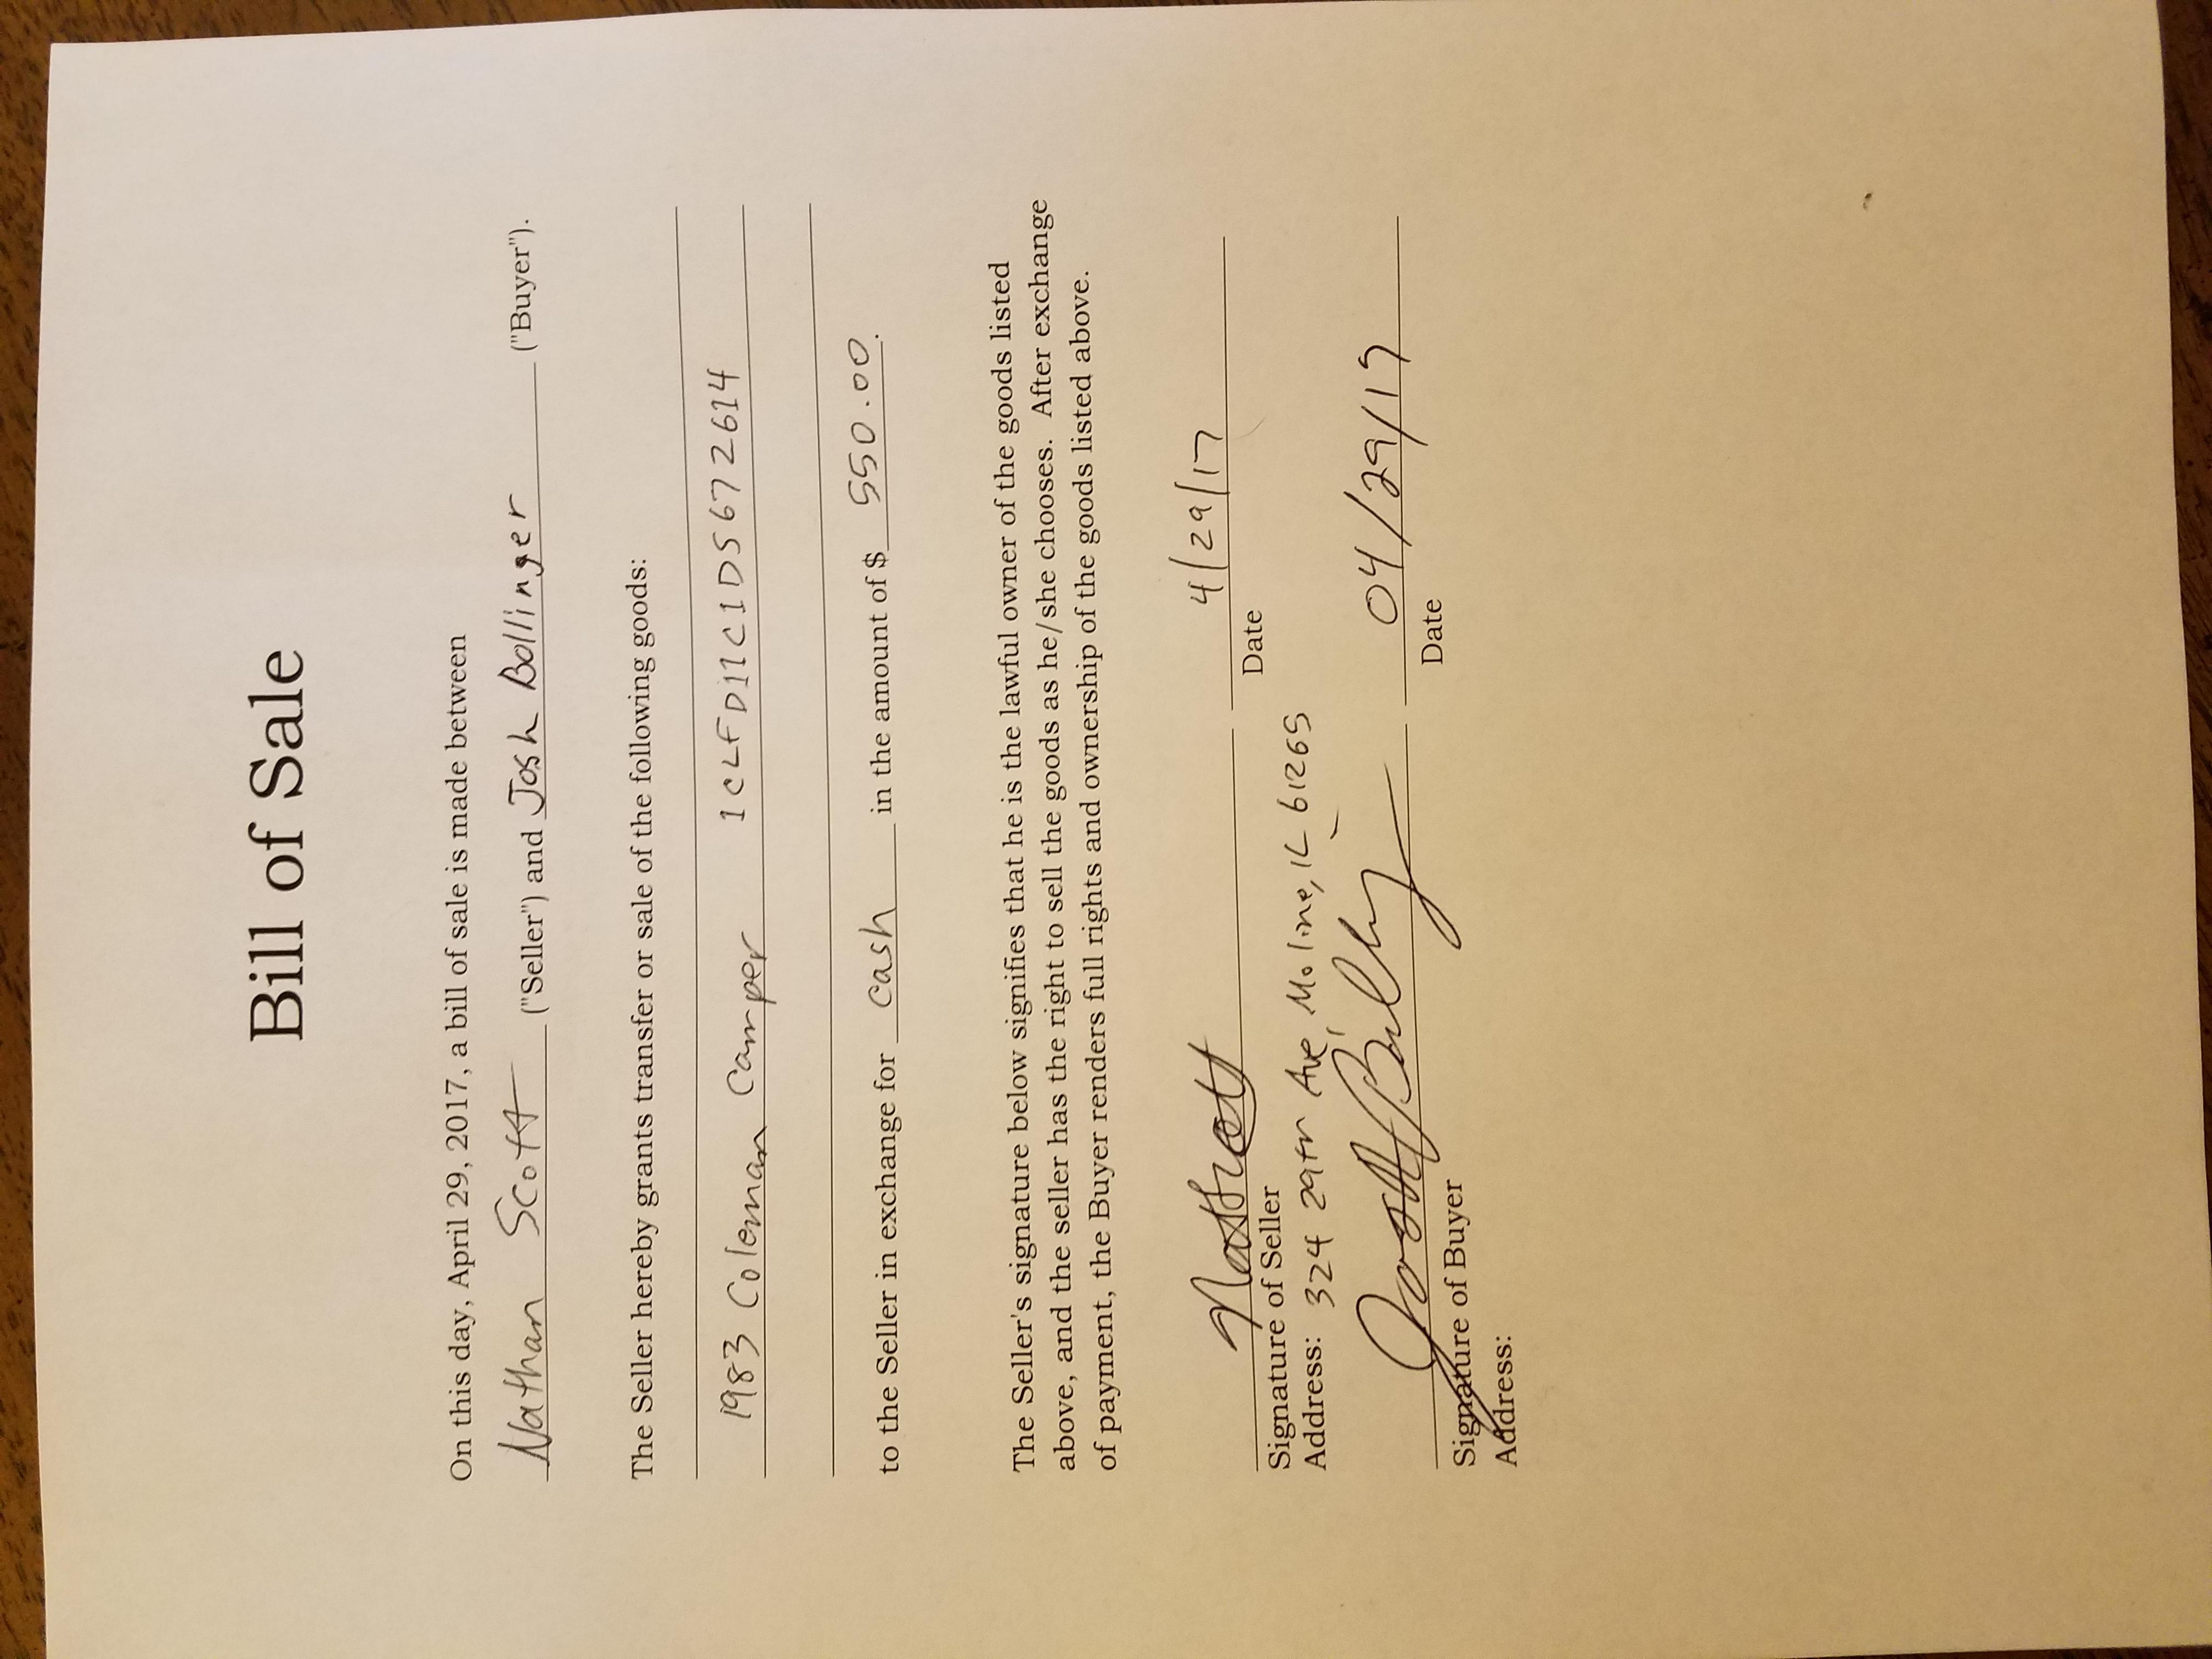 Bill of Sale
On this day, April 29, 2017, a bill of sale is made between
Nathan Scott ("Seller") and Josh Bollinger ("Buyer").
The Seller hereby grants transfer or sale of the following goods:
1983 Coleman Camper 1CLFD11C1DS672614
to the Seller in exchange for cash in the amount of $ 550.00.
The Seller's signature below signifies that he is the lawful owner of the goods listed
above, and the seller has the right to sell the goods as he/she chooses. After exchange
of payment, the Buyer renders full rights and ownership of the goods listed above.
4/29/17
Signature of Seller Date
Address: 324 29th Ave, Moline, IL 61265
04/29/17
Signature of Buyer Date
Address: